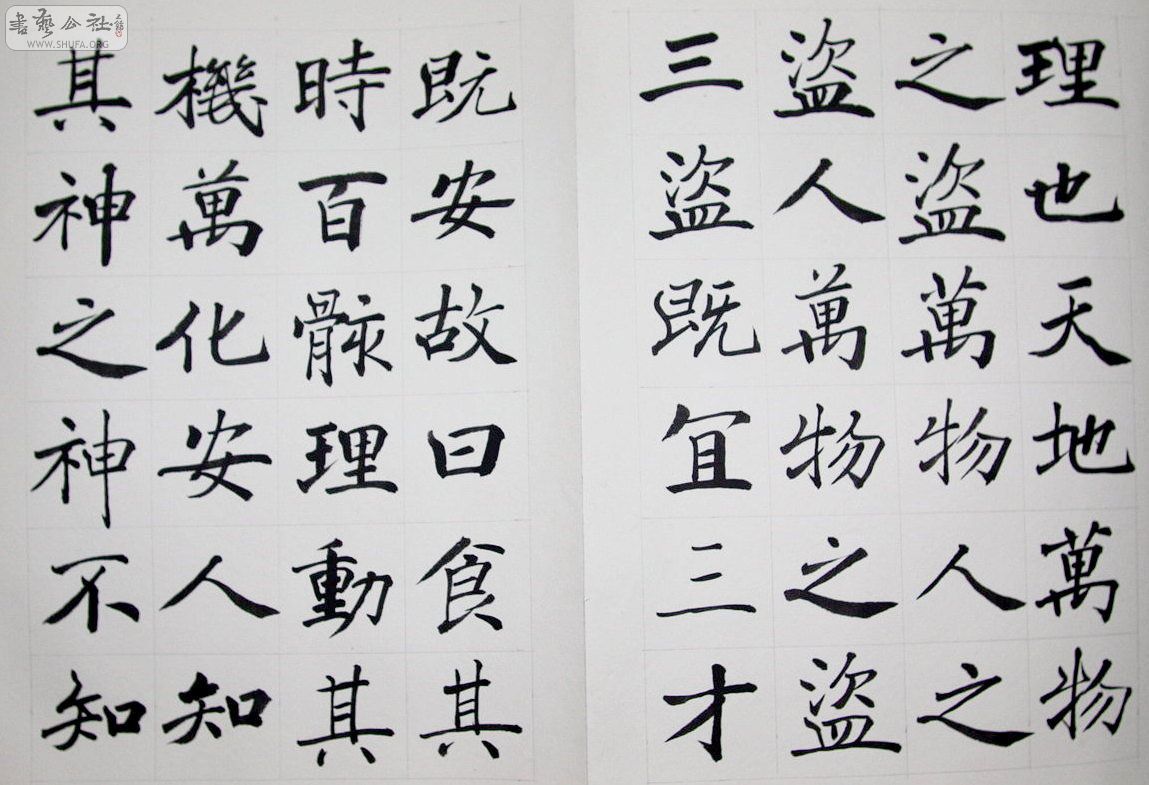 理也天地萬物
之盜萬物人之
盜人萬物之盜
三盜既冝三才
既安故曰食其
時百骸理動其
機萬化安人知
其神之神不知
書藝公社
WWW.SHUFA.ORG